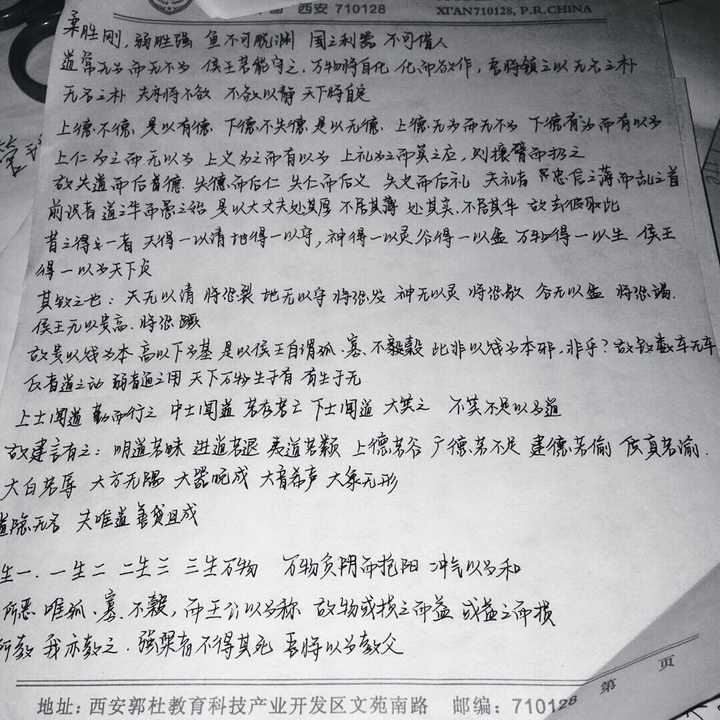 中国 西安 710128
XI'AN 710128, P.R.CHINA
柔胜刚，弱胜强 鱼不可脱渊 国之利器 不可借人
道常无为而无不为 侯王若能守之，万物将自化 化而欲作，吾将镇之以无名之朴
无名之朴 夫亦将不欲 不欲以静 天下将自定
上德不德，是以有德，下德不失德，是以无德，上德无为而无不为 下德有为而有以为
上仁为之而无以为 上义为之而有以为 上礼为之而莫之应，则攘臂而扔之
故失道而后首德，失德而后仁 失仁而后义 失义而后礼 夫礼者 忠信之薄而乱之首
前识者 道之华而愚之始 是以大丈夫处其厚 不居其薄 处其实，不居其华 故去彼取此
昔之得一者 天得一以清 地得一以宁，神得一以灵 谷得一以盈 万物得一以生 侯王
得一以为天下贞
其致之也：天无以清 将恐裂 地无以宁 将恐发 神无以灵 将恐歇 谷无以盈 将恐竭，
侯王无以贵高，将恐蹶
故贵以贱为本 高以下为基 是以侯王自谓孤、寡、不毂 此非以贱为本邪，非乎？故致数车无车
反者道之动 弱者道之用 天下万物生于有 有生于无
上士闻道 勤而行之 中士闻道 若存若亡 下士闻道 大笑之 不笑不足以为道
故建言有之：明道若昧 进道若退 夷道若颣 上德若谷 广德若不足 建德若偷 质真若渝，
大白若辱 大方无隅 大器晚成 大音希声 大象无形
道隐无名 夫唯道 善贷且成
生一，一生二 二生三 三生万物 万物负阴而抱阳 冲气以为和
所恶 唯孤、寡、不毂，而王公以为称 故物或损之而益 或益之而损
所教 我亦教之，强梁者不得其死 吾将以为教父
第 页
地址：西安郭杜教育科技产业开发区文苑南路 邮编：710128